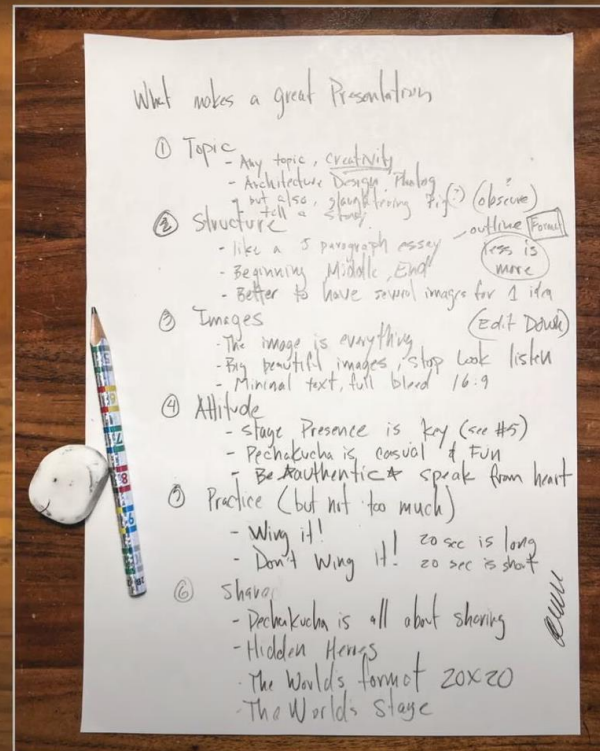 What makes a great Presentation
① Topic
- Any topic, creativity
- Architecture Design Photog
but also, slaughtering Pig(?) (obscure)
tell a story
② Structure - outline Format
- like a 5 paragraph essay less is
- Beginning, Middle, End more
- Better to have several images for 1 idea
③ Images (Edit Down)
- The image is everything
- Big beautiful images, stop look listen
- Minimal text, full bleed 16:9
④ Attitude
- stage Presence is key (see #5)
- Pechakucha is casual & Fun
- Be ☆authentic☆ speak from heart
⑤ Practice (but not too much)
- Wing it! 20 sec is long
- Don't Wing it! 20 sec is short
⑥ Share
- Pechakucha is all about sharing
- Hidden Heroes
- The World's format 20x20
- The World's Stage